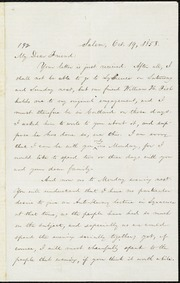 Salem, Oct. 19, 1853.
My Dear Friend:
Your letter is just received. After all, I
shall not be able to go to Syracuse on Saturday
and Sunday next, but our friend William H. Fish
holds me to my original engagement, and I
must therefore be in Cortland on those days. I
asked him to write to you about it, and sup-
pose he has done so, ere this. I am sorry
that I can be with you only Monday, for I
would like to spend two or three days with you
and your dear family.
And now as to Monday evening next.
You will understand that I have no particular
desire to give an Anti-Slavery lecture in Syracuse
at that time, as the people have had so much
on the subject, and especially as we could
spend the evening socially together; yet, of
course, I will most cheerfully speak to the
people that evening, if you think it worth while.